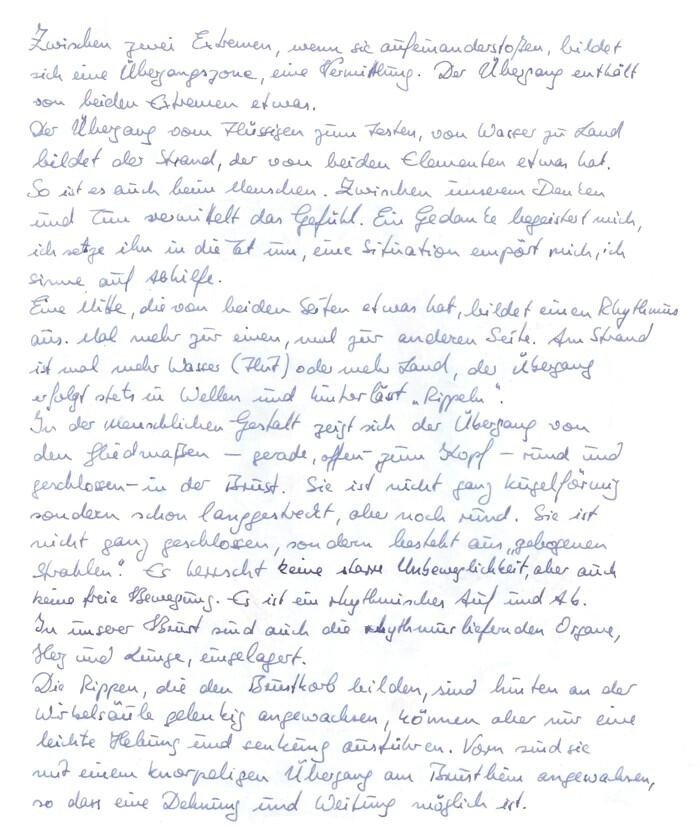 Zwischen zwei Extremen, wenn sie aufeinanderstoßen, bildet
sich eine Übergangszone, eine Vermittlung. Der Übergang enthält
von beiden Extremen etwas.
Der Übergang vom Flüssigen zum Festen, von Wasser zu Land
bildet der Strand, der von beiden Elementen etwas hat.
So ist es auch beim Menschen. Zwischen unserem Denken
und Tun vermittelt das Gefühl. Ein Gedanke begeistert mich,
ich setze ihn in die Tat um, eine Situation empört mich, ich
sinne auf Abhilfe.
Eine Mitte, die von beiden Seiten etwas hat, bildet einen Rhythmus
aus. Mal mehr zur einen, mal zur anderen Seite. Am Strand
ist mal mehr Wasser (Flut) oder mehr Land, der Übergang
erfolgt stets in Wellen und hinterlässt „Rippeln“.
In der menschlichen Gestalt zeigt sich der Übergang von
den Gliedmaßen – gerade, offen – zum Kopf – rund und
geschlossen – in der Brust. Sie ist nicht ganz kugelförmig
sondern schon langgestreckt, aber noch rund. Sie ist
nicht ganz geschlossen, sondern besteht aus „gebogenen
Strahlen“. Es herrscht keine starre Unbeweglichkeit, aber auch
keine freie Bewegung. Es ist ein rhythmisches Auf und Ab.
In unserer Brust sind auch die rhythmusliefernden Organe,
Herz und Lunge, eingelagert.
Die Rippen, die den Brustkorb bilden, sind hinten an der
Wirbelsäule gelenkig angewachsen, können aber nur eine
leichte Hebung und Senkung ausführen. Vorn sind sie
mit einem knorpeligen Übergang am Brustbein angewachsen,
so dass eine Dehnung und Weitung möglich ist.